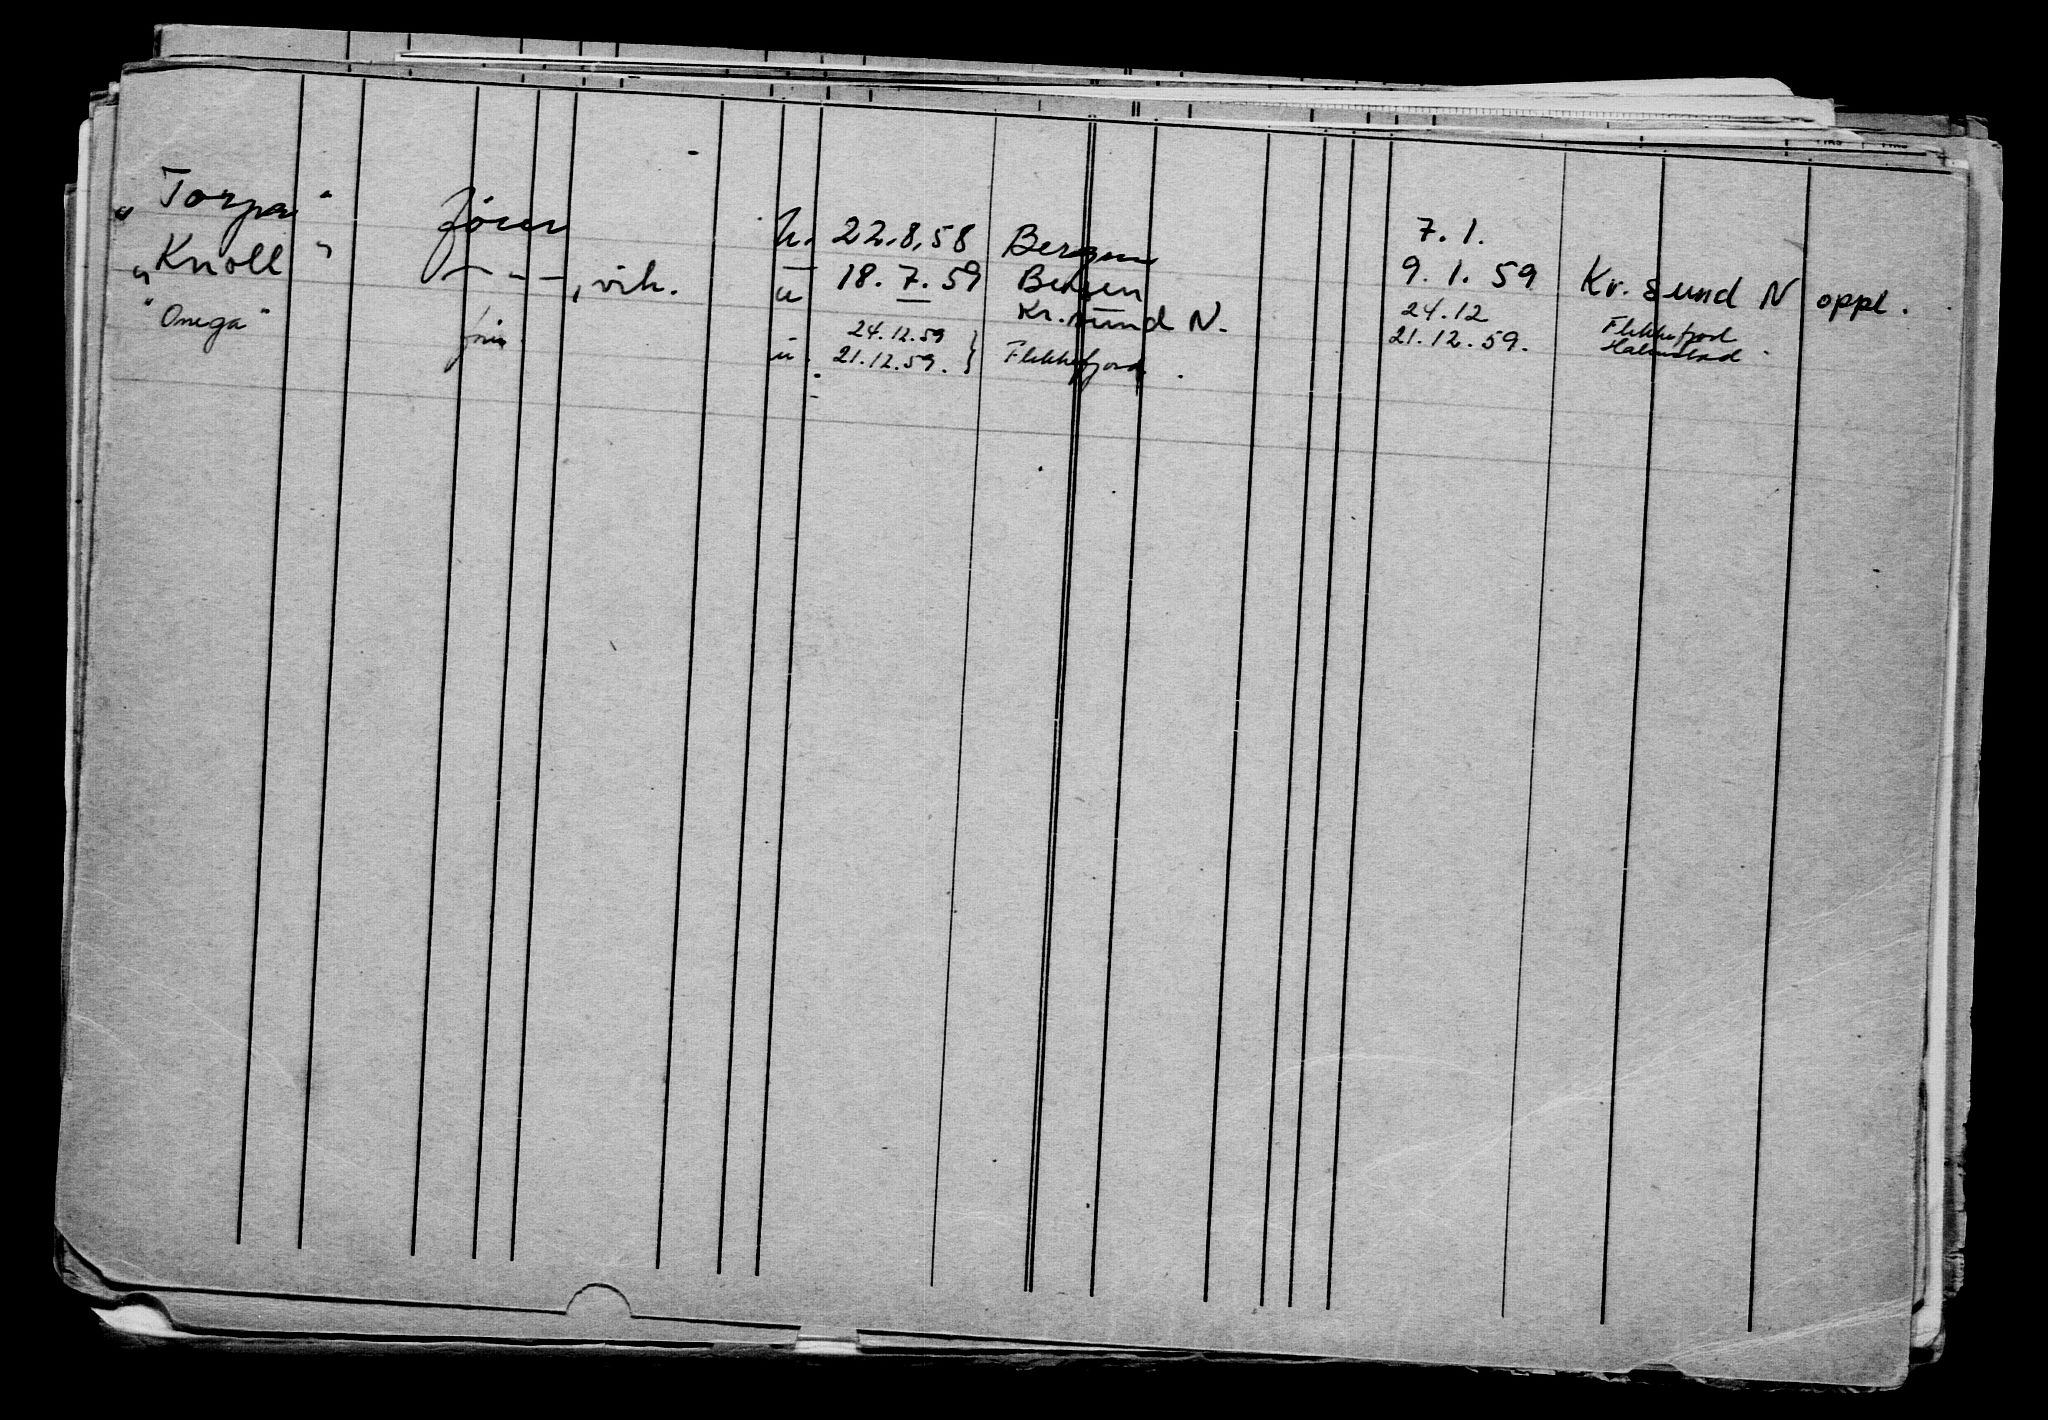 "Torpa" fører u. 22.8.58 Bergen 7.1.
"Knoll" — - —, vik. u 18.7.59 Bergen 9.1.59 Kr.sund N oppl.
Kr.sund N. 24.12
"Onega" fører 24.12.59 Flekkefjord
u. 21.12.59. } Flekkefjord. 21.12.59. Halmstad